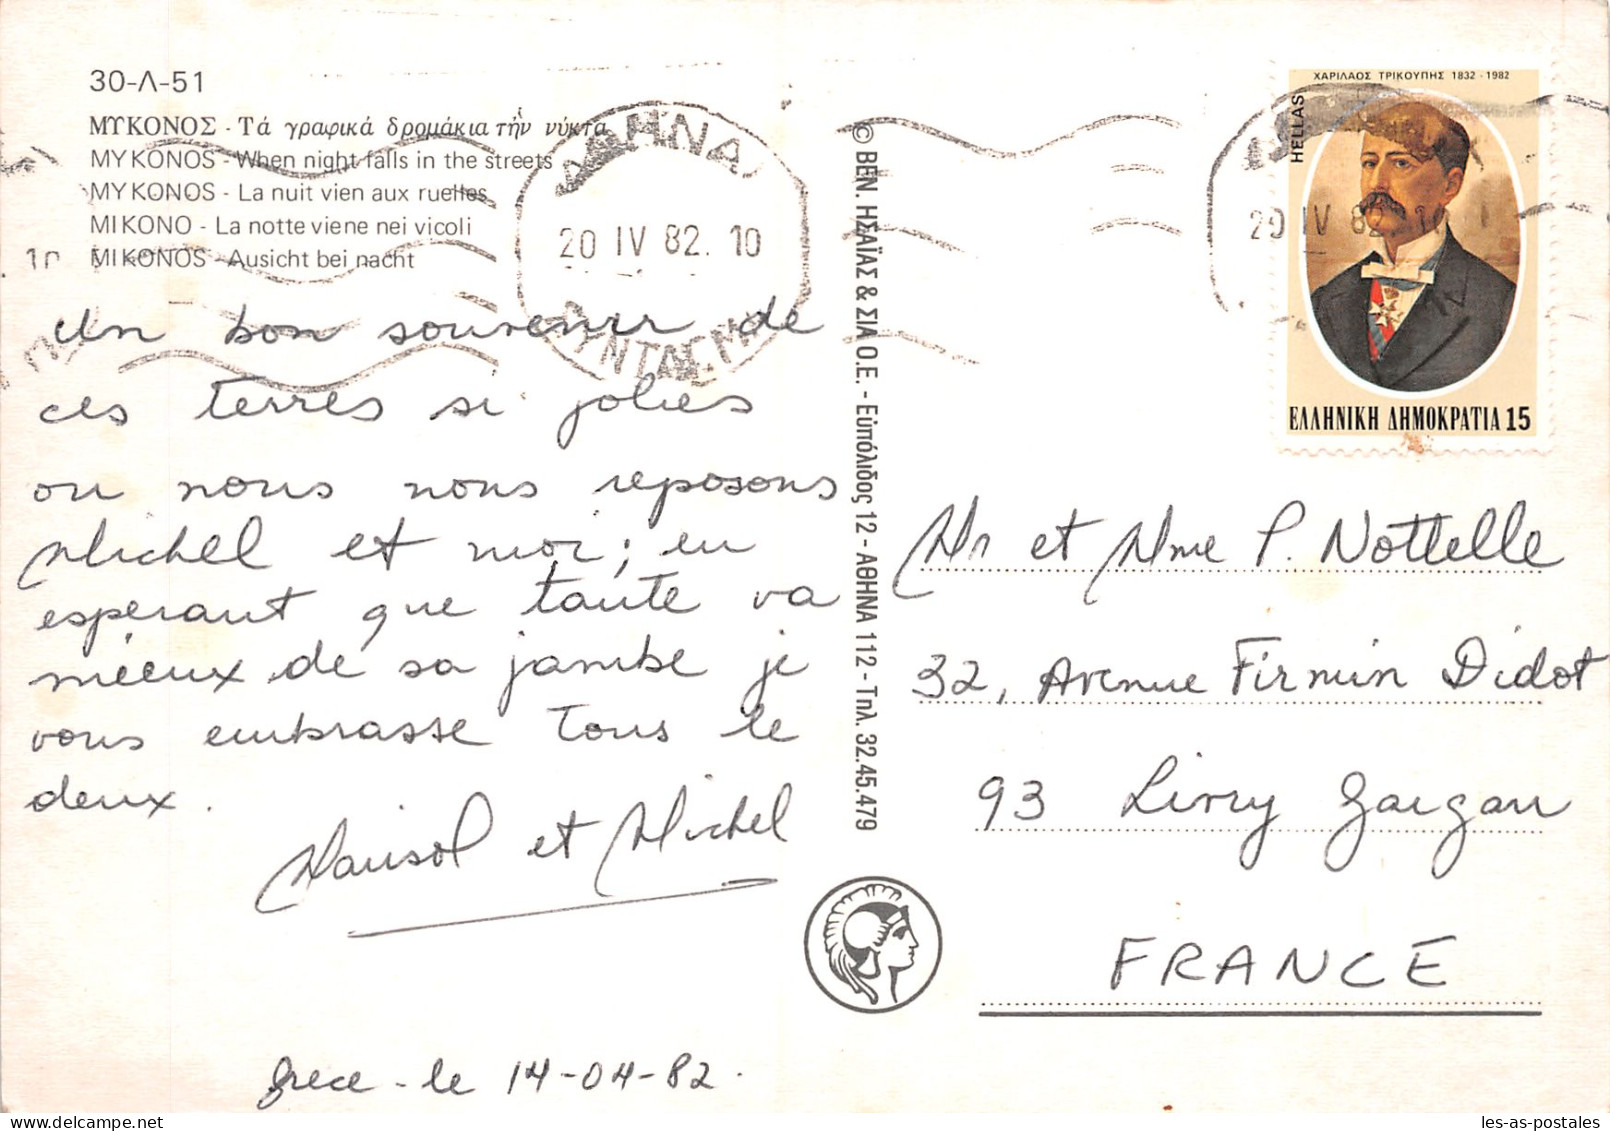 30-Λ-51
ΜΥΚΟΝΟΣ - Τά γραφικά δρομάκια τήν νύκτα
MYKONOS - When night falls in the streets
MYKONOS - La nuit vien aux ruelles
MIKONO - La notte viene nei vicoli
MIKONOS - Ausicht bei nacht
ΑΘΗΝΑΙ
20 IV 82. 10
ΣΥΝΤΑΓΜΑ
Un bon souvenir de
ces terres si jolies
ou nous nous reposons
Michel et moi; en
esperant que tante va
mieux de sa jambe je
vous embrasse tous le
deux.
Marisol et Michel
Grece - le 14-04-82.
© ΒΕΝ. ΗΣΑΪΑΣ & ΣΙΑ Ο.Ε. - Εὐπόλιδος 12 - ΑΘΗΝΑ 112 - Τηλ. 32.45.479
ΧΑΡΙΛΑΟΣ ΤΡΙΚΟΥΠΗΣ 1832 - 1982
HELLAS
20 IV 82. 10
ΕΛΛΗΝΙΚΗ ΔΗΜΟΚΡΑΤΙΑ 15
Mr et Mme P. Nottelle
32, Avenue Firmin Didot
93 Livry Gargan
FRANCE
les-as-postales